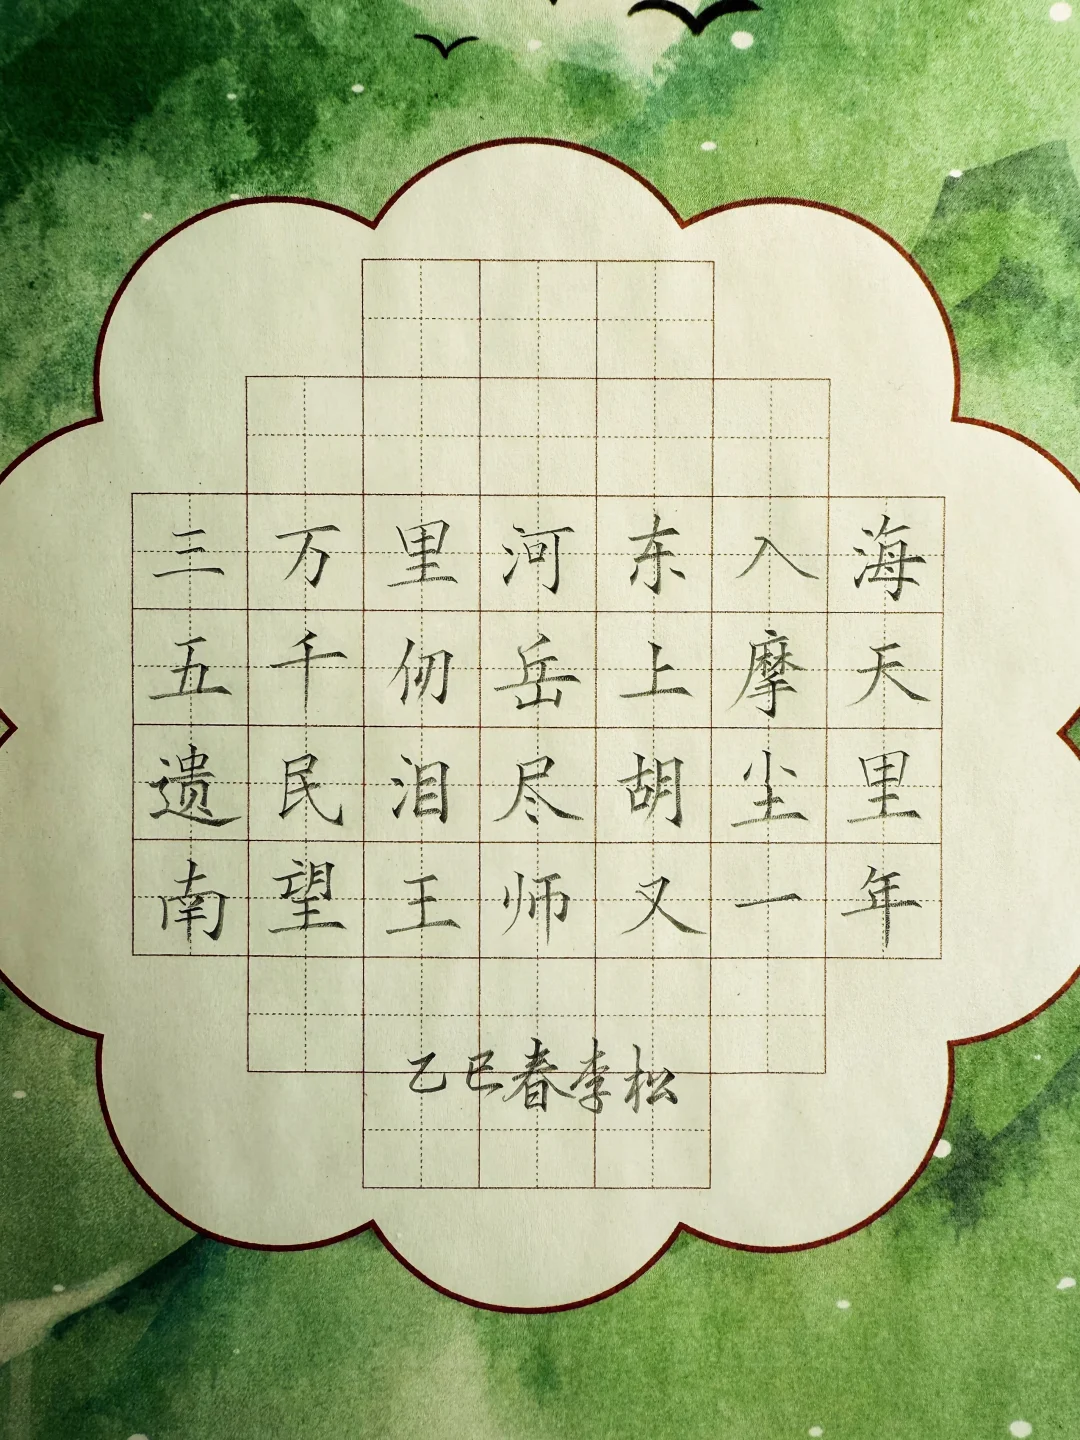 三万里河东入海
五千仞岳上摩天
遗民泪尽胡尘里
南望王师又一年
乙巳春李松